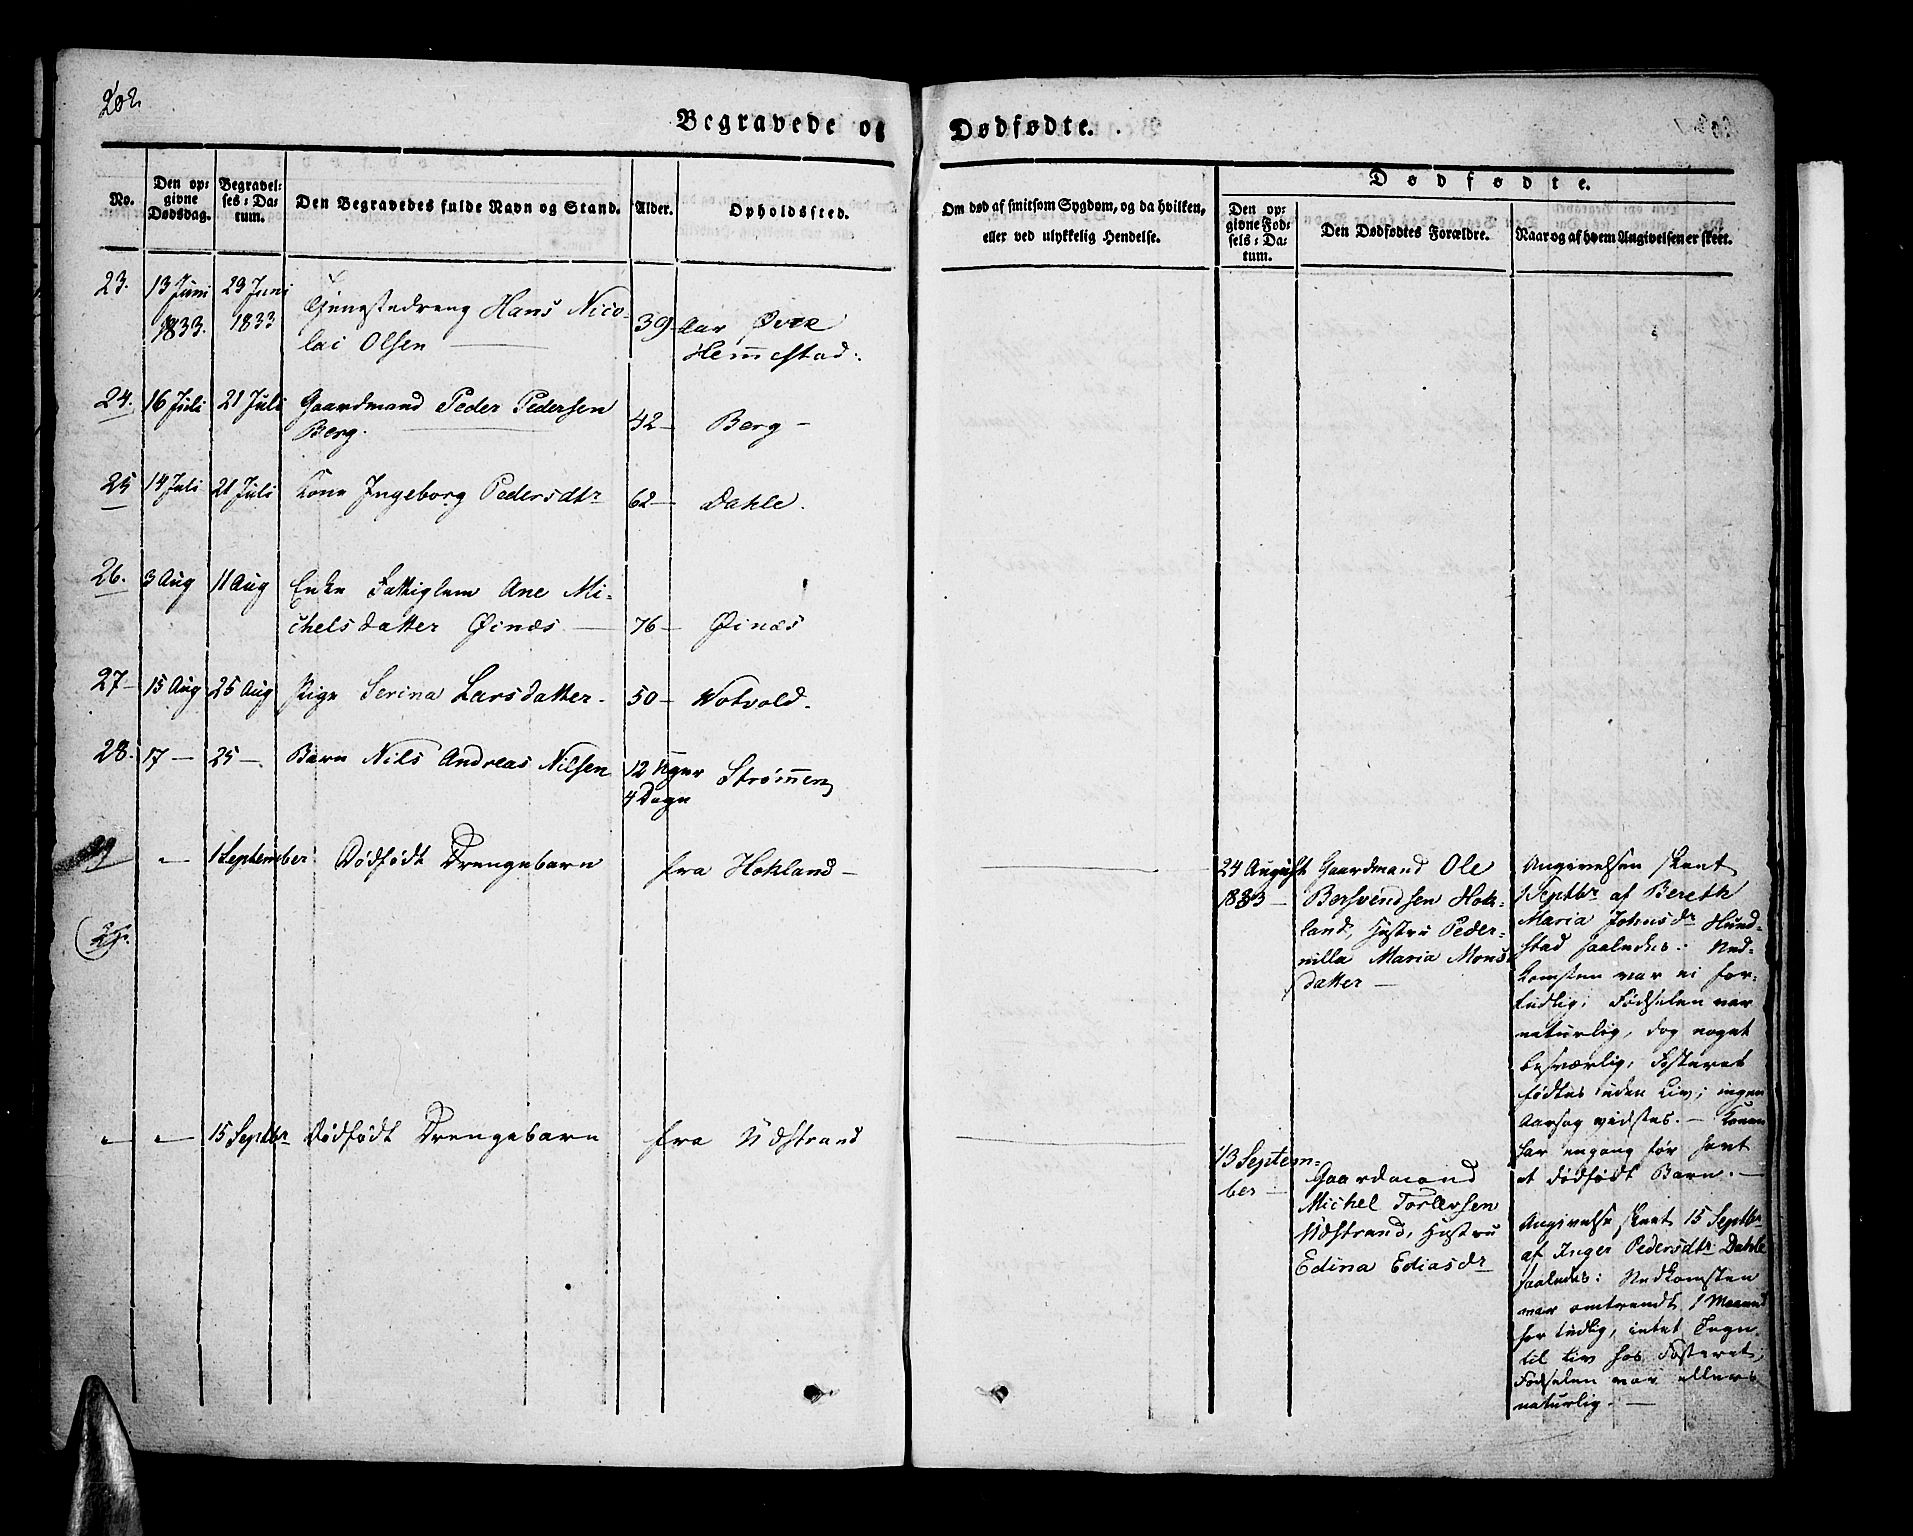 202.
Begravede og
Dødfødte.
No.
Den op-
givne
Dødsdag.
Begravel-
ses-Da-
tum.
Den Begravedes fulde Navn og Stand.
Alder.
Opholdssted.
Om død af smitsom Sygdom, og da hvilken,
eller ved ulykkelig Hendelse.
Dødfødte.
Den op-
givne Fød-
sels-Da-
tum.
Den Dødfødtes Forældre.
Naar og af hvem Angivelsen er skeet.
23. 13 Juni 29 Juni
1833. 1833 Tjenestedreng Hans Nico-
lai Olsen 39 Aar Øvre
Hemmestad.
24. 16 Juli 21 Juli Gaardmand Peder Pedersen
Berg. 42 — Berg —
25 14 Juli 21 Juli Kone Ingeborg Pedersdtr 62 — Dahle.
26. 3 Aug 11 Aug Enke Fattiglem Ane Mi-
chelsdatter Øinæs — 76 — Øinæs
27 — 15 Aug 25 Aug Pige Serina Larsdatter. 50 — Votvold.
28. 17 — 25 — Barn Nils Andreas Nilsen 12 Uger
4 Dage Strømmen
29 „ 1 September Dødfødt Drengebarn fra Hokland —
24 August
1833 —
Gaardmand Ole
Bersvendsen Hok-
land, Hustru Peder-
nilla Maria Mons
datter —
Angivelsen skeet
1 Septbr af Bereth
Maria Johnsdr Hund-
stad saaledes: Ned-
komsten var ei for-
tidlig; Fødselen var
naturlig, dog noget
besværlig; Fosteret
fødtes uden Liv; ingen
Aarsag vidstes. — Konen
har engang før havt
et dødfødt Barn. —
„ „ 15 Septbr Dødfødt Drengebarn fra Udstrand
13 Septem-
ber —
Gaardmand
Michel Torlevsen
Udstrand, Hustru
Edina Ediasdr
Angivelse skeet 15 Septbr
af Inger Pedersdtr Dahle
saaledes: Nedkomsten
var omtrendt 1 Maaned
for tidlig, intet Tegn
til Liv hos Fosteret;
Fødselen var ellers
naturlig. —